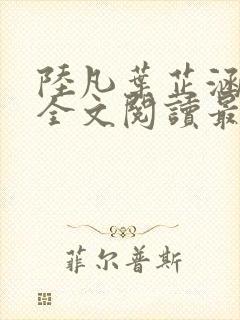 陸凡葉芷涵
全文閱讀最
菲尔普斯